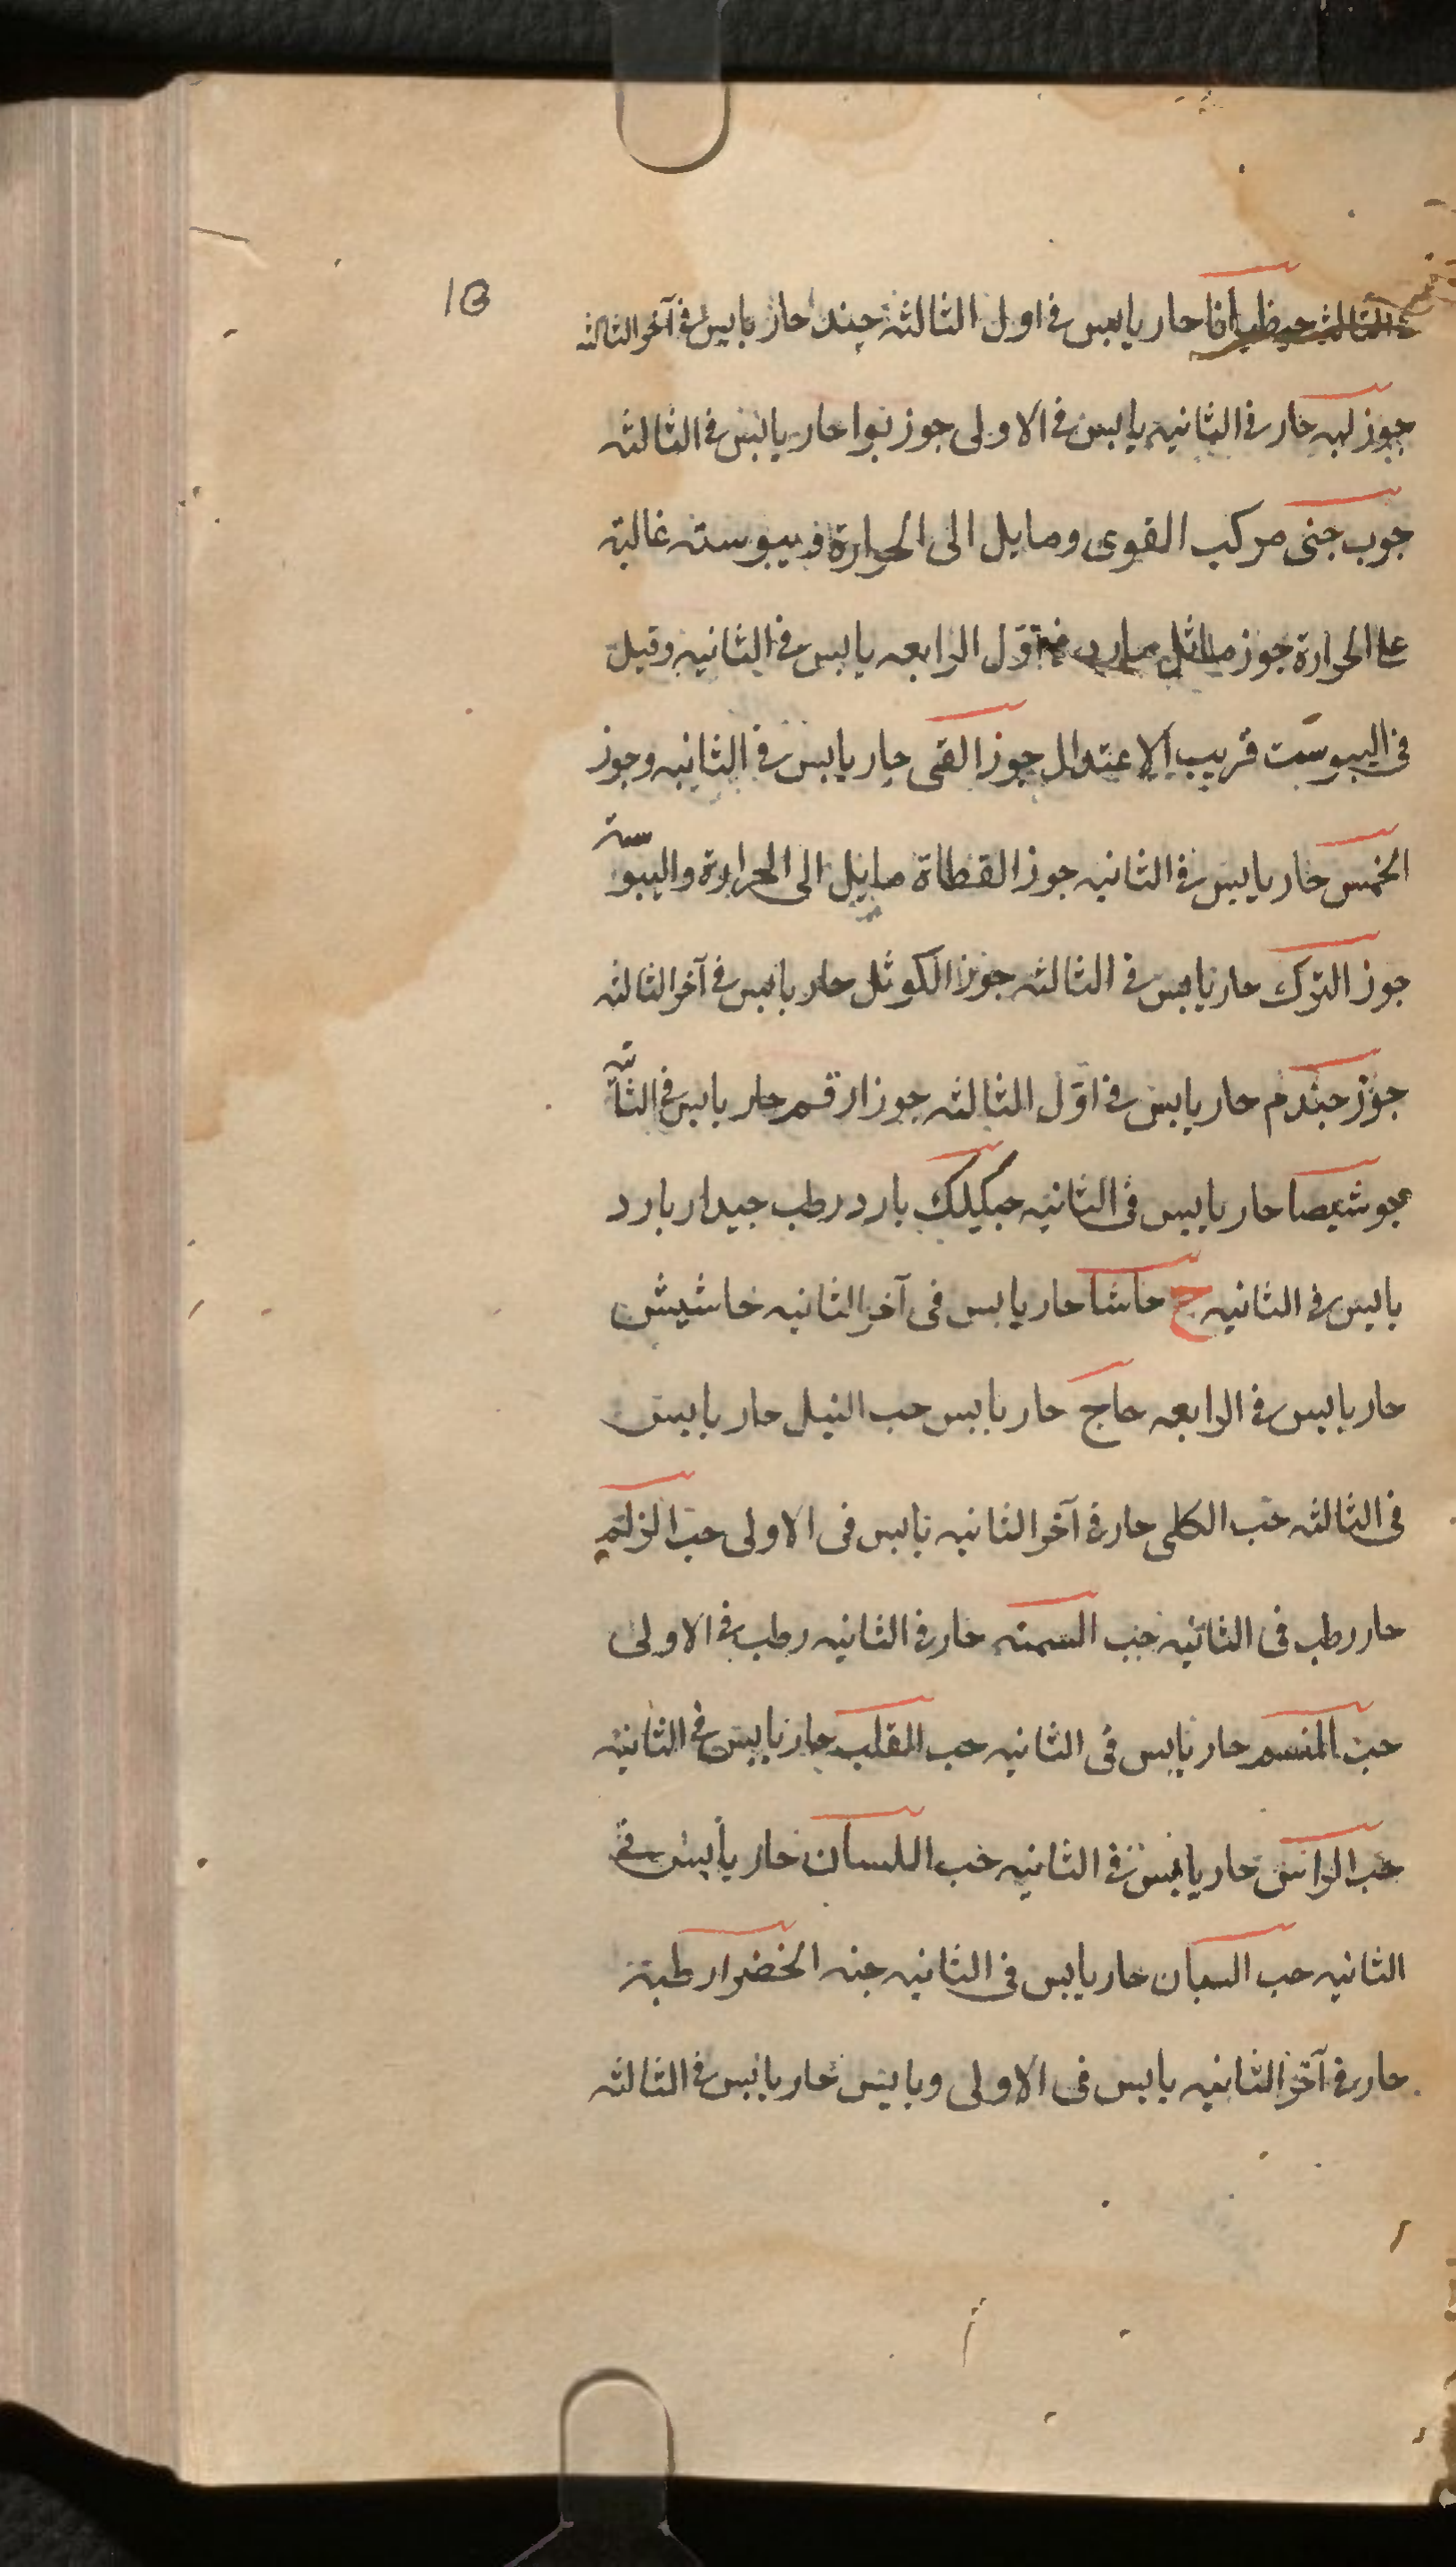 13
حار يابس في اول الثالثة جند حار يابس في آخر الثالثه
جوز لهه حار في الثانيه يابس في الاولى جوز بوا حار يابس في الثالثه
جوب جنى مركب القوى ومايل الى الحرارة ويبوسته غالبة
على الحرارة جوز ماثل بارد في اوّل الرابعه يابس في الثانيه وقيل
في اليبوست قريب الاعتدال جوز القى حار يابس في الثانيه وجوز
الخمس حار يابس في الثانيه جوز القطاة مايل الى الحرارة واليبوسة
جوز الترك حار يابس في الثالثه جوز الكوثل حار يابس في آخر الثالثه
جوز جندم حار يابس في اوّل الثالثه جوز ارقم حار يابس في الثانيه
جوشيصا حار يابس في الثانيه جبكيلك بارد رطب جيدار بارد
يابس في الثانيه ح حاشا حار يابس في آخر الثانيه خاشيش
حار يابس في الرابعه حاج حار يابس حب النيل حار يابس
في الثالثه حب الكلى حار في آخر الثانيه يابس في الاولى حب الزلم
حار رطب في الثانيه حب السمنه حار في الثانيه رطب في الاولى
حب المنسم حار يابس في الثانيه حب المقلب حار يابس في الثانيه
حب الراس حار يابس في الثانيه حب اللسان حار يابس في
الثانيه حب البان حار يابس في الثانيه حبه الخضرا رطبة
حار في آخر الثانيه يابس في الاولى ويابس حار يابس في الثالثه